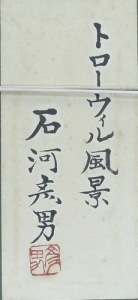 トローウィル風景
石河彦男